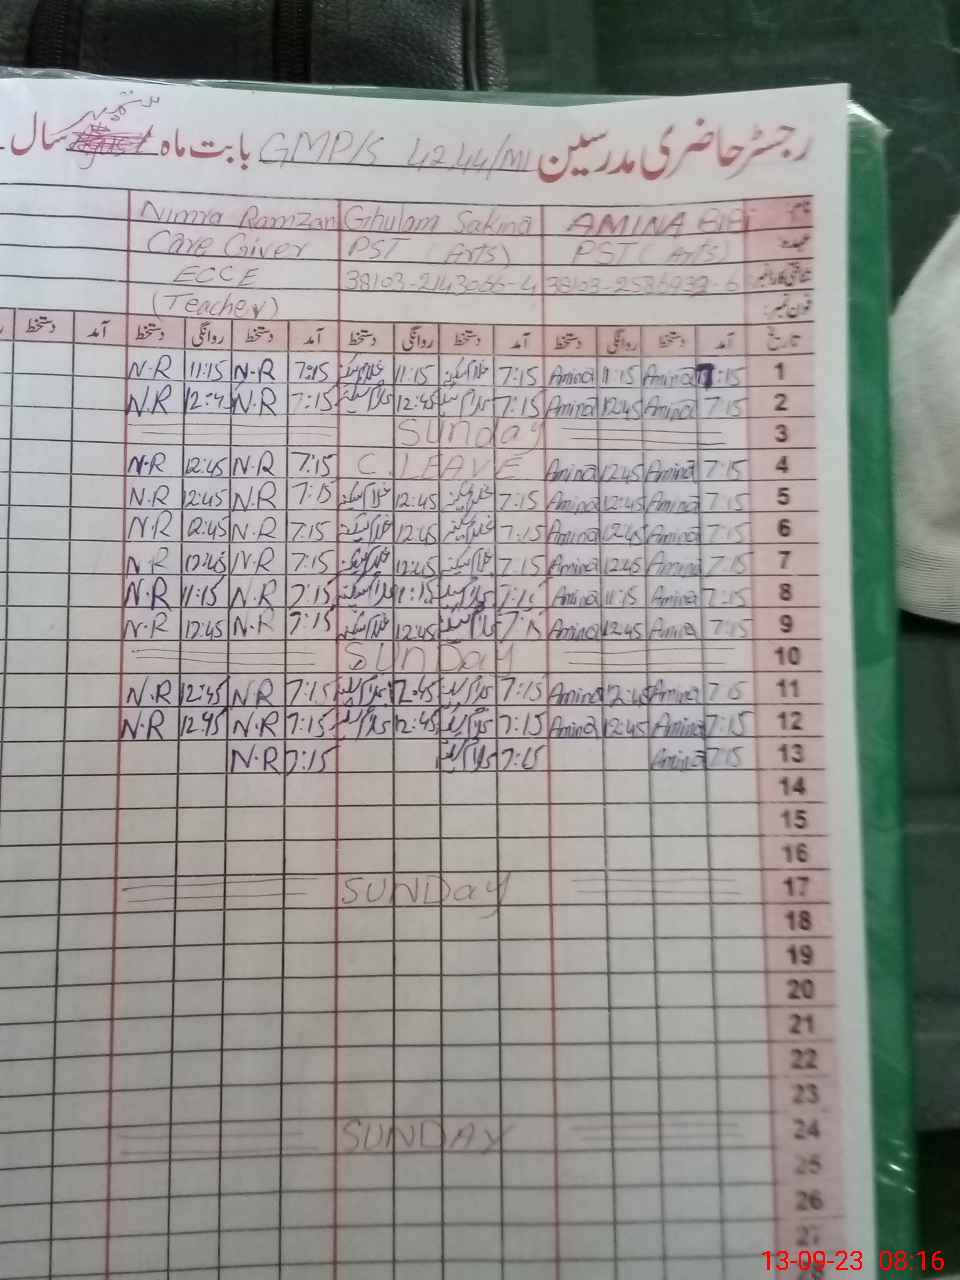 رجسٹر حاضری مدرسین GMP/S 42 44/ML بابت ماہ ستمبر سال
نام: AMINA BIBI Ghulam Sakina Nimra Ramzan
عہدہ: PST (Arts) PST (Arts) Care Giver
38103-2143056-4 ECCE
فون نمبر: (Teacher)
تاریخ آمد دستخط روانگی دستخط آمد دستخط روانگی دستخط آمد دستخط روانگی دستخط آمد دستخط
1 7:15 Amina 11:15 Amina 7:15 غلام سکینہ 11:15 غلام سکینہ 7:15 N.R 11:15 N.R
2 7:15 Amina 12:45 Amina 7:15 غلام سکینہ 12:45 غلام سکینہ 7:15 N.R 12:4 N.R
3 Sunday
4 7:15 Amina 12:45 Amina C.LEAVE 7:15 N.R 12:45 N.R
5 7:15 Amina 12:45 Amina 7:15 غلام سکینہ 12:45 غلام سکینہ 7:15 N.R 12:45 N.R
6 7:15 Amina 12:45 Amina 7:15 غلام سکینہ 12:45 غلام سکینہ 7:15 N.R 12:45 N.R
7 7:15 Amina 12:45 Amina 7:15 غلام سکینہ 12:45 غلام سکینہ 7:15 N.R 12:45 N.R
8 7:15 Amina 11:15 Amina 7:15 غلام سکینہ 11:15 غلام سکینہ 7:15 N.R 11:15 N.R
9 7:15 Amina 12:45 Amina 7:15 غلام سکینہ 12:45 غلام سکینہ 7:15 N.R 12:45 N.R
10 SUNDay
11 7:15 Amina 12:45 Amina 7:15 غلام سکینہ 12:45 غلام سکینہ 7:15 N.R 12:45 N.R
12 7:15 Amina 12:45 Amina 7:15 غلام سکینہ 12:45 غلام سکینہ 7:15 N.R 12:45 N.R
13 7:15 Amina 7:15 غلام سکینہ 7:15 N.R
14
15
16
17 SUNDay
18
19
20
21
22
23
24 SUNDAy
25
26
27
13-09-23 08:16